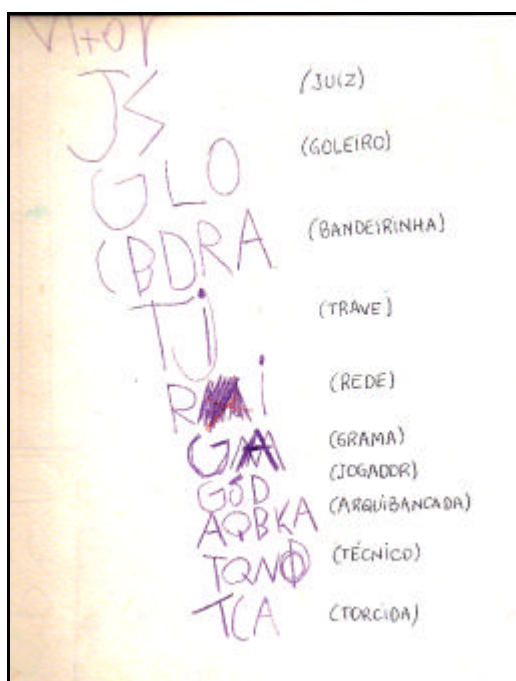 Vitor
JS (JUIZ)
GLO (GOLEIRO)
(BDRA (BANDEIRINHA)
Tj (TRAVE)
R i (REDE)
GMA (GRAMA)
GÓD (JOGADOR)
AQBKA (ARQUIBANCADA)
TQNO (TÉCNICO)
TCA (TORCIDA)